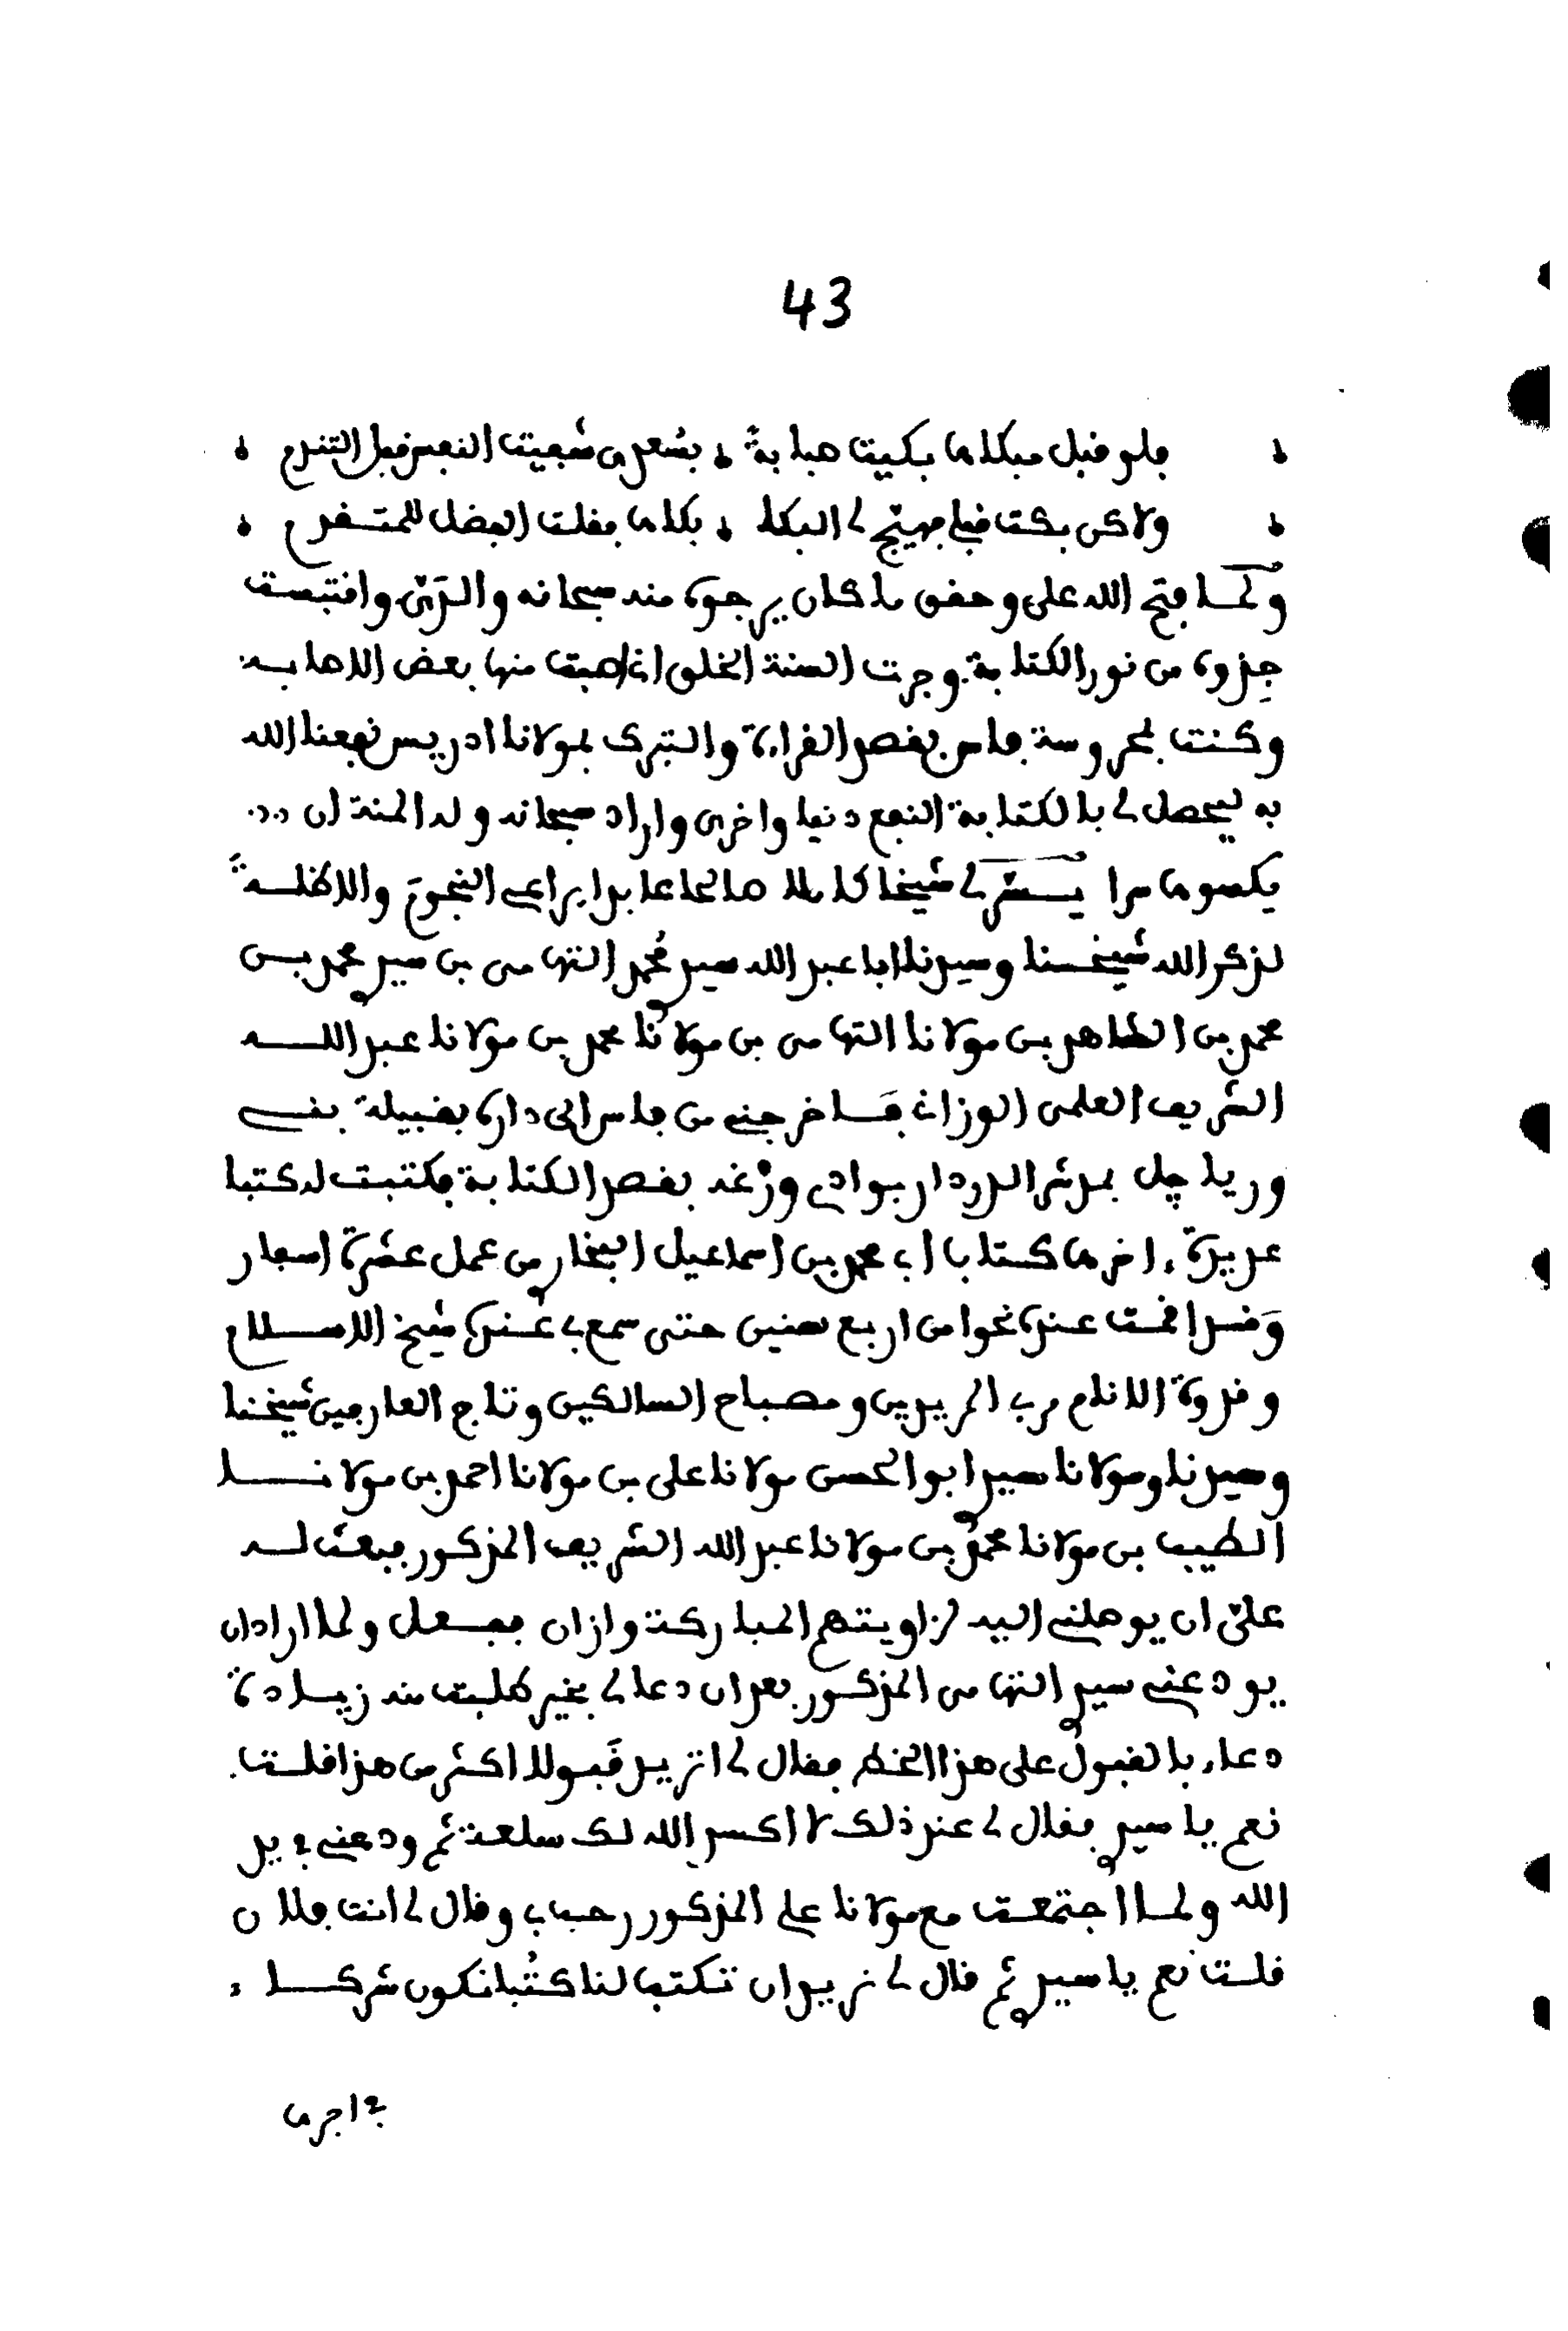 43
فلو قبل مبكاها بكيت صبابة بسعدى شفيت النفس قبل التندم
ولاكن بكت قبلي فهيج لي البكا بكاها فقلت الفضل للمتقدم
ولما فتح الله علي وحقق ما كان يرجوه منه سبحانه والدي واقتبست
جذوة من نور الكتابة وجرت السنة الخلق اني اصبت منها بعض الاصابة
وكنت بمحروسة فاس بقصد القراءة والتبرك بمولانا ادريس نفعنا الله
به ليحصل لي بالكتابة النفع دنيا واخرى واراد سبحانه وله المنة ان
يكسوها سرا يسر لي شيخا كاملا صالحا عابدا يراعي النجوم والاظلة
لذكر الله شيخنا وسيدنا ابا عبد الله سيدي محمد التهامي بن سيدي محمد بن
محمد بن الطاهر بن مولانا التهامي بن مولانا محمد بن مولانا عبد الله
الشريف العلمي الوزاني فاخرجني من فاس الى داره بقبيلة بني
ورياچل بمدشر الدردار بوادي ورغه بقصد الكتابة فكتبت له كتبا
عديدة اخرها كتاب ابي محمد بن اسماعيل البخاري من عمل عشرة اسفار
وقد اقمت عنده نحوا من اربع سنين حتى سمع بي عنده شيخ الاسلام
وقدوة الانام مرب المريدين ومصباح السالكين وتاج العارفين شيخنا
وسيدنا ومولانا سيدي ابو الحسن مولانا علي بن مولانا احمد بن مولانا
الطيب بن مولانا محمد بن مولانا عبد الله الشريف المذكور فبعث له
علي ان يوصلني اليه لزاويتهم المباركة وازان ففعل ولما اراد ان
يودعني سيدي التهامي المذكور بعد ان دعا لي بخير طلبت منه زيادة
دعاء بالقبول على هذا الخط فقال لي اتريد قبولا اكثر من هذا قلت
نعم يا سيدي فقال لي عند ذلك لا اكسد الله لك سلعة ثم ودعني في يد
الله ولما اجتمعت مع مولانا علي المذكور رحب بي وقال لي انت فلان
قلت نعم يا سيدي ثم قال لي نريد ان تكتب لنا كتبا نكون شركا
في اجرها